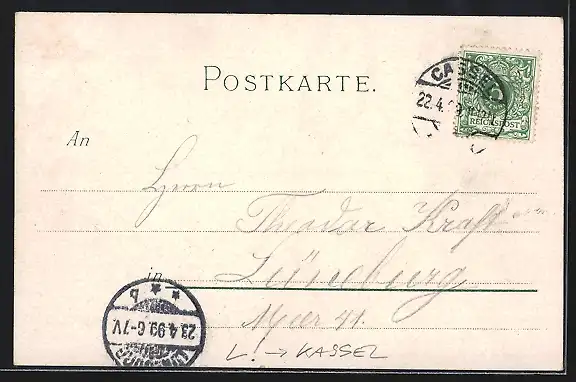 POSTKARTE.
CASSEL
22.4.
REICHSPOST
An
Herrn
Theodor Kraft
in Lüneburg
23.4.99.6-7V.
L. → KASSEL